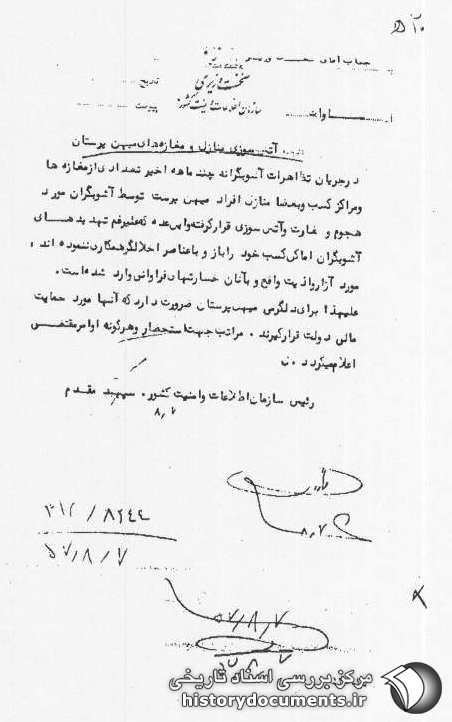 جناب آقای نخست وزیر
نخست وزیری
تاریخ
سازمان اطلاعات و امنیت کشور
پیوست
آتش سوزی منازل و مغازه‌های میهن پرستان
در جریان تظاهرات آشوبگرانه چند ماهه اخیر تعدادی از مغازه ها
و مراکز کسب و بعضا منازل افراد میهن پرست توسط آشوبگران مورد
هجوم و غارت و آتش سوزی قرار گرفته و این عده که علیرغم تهدیدهای
آشوبگران اماکن کسب خود را باز و با عناصر اخلالگر همکاری ننموده اند ،
مورد آزار و اذیت واقع و به آنان خسارتهای فراوانی وارد شده است .
علیهذا برای دلگرمی میهن پرستان ضرورت دارد که آنها مورد حمایت
مالی دولت قرار گیرند . مراتب جهت استحضار و هرگونه اوامر مقتضی
اعلام میگردد . ن
رئیس سازمان اطلاعات و امنیت کشور . سپهبد مقدم
۸٫۷
۸٫۷
۳۱۲/۸۲۴۴
۵۷/۸/۷
۵۷/۸/۷
مرکز بررسی اسناد تاریخی
historydocuments.ir